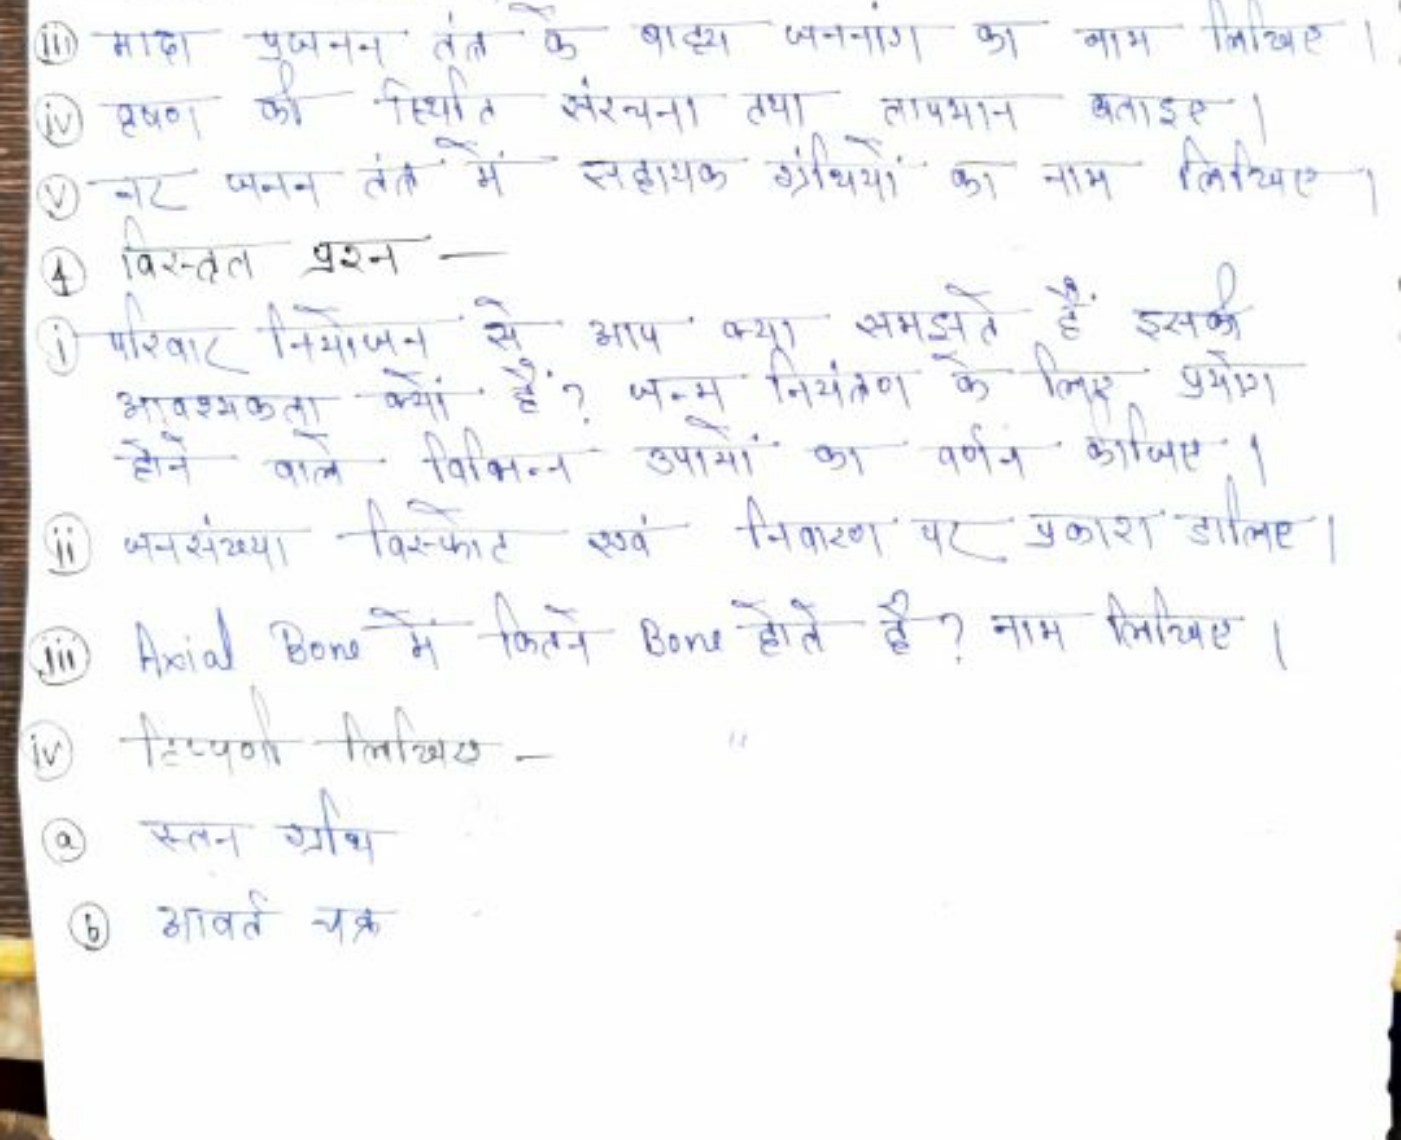 (iii) मादा प्रजनन तंत्र के बाह्य जननांग का नाम लिखिए ।
(iv) वृषण की स्थिति संरचना तथा तापमान बताइए ।
(v) नर जनन तंत्र में सहायक ग्रंथियों का नाम लिखिए ।
(4) विस्तृत प्रश्न —
(i) परिवार नियोजन से आप क्या समझते हैं इसकी
आवश्यकता क्यों है ? जन्म नियंत्रण के लिए प्रयोग
होने वाले विभिन्न उपायों का वर्णन कीजिए ।
(ii) जनसंख्या विस्फोट एवं निवारण पर प्रकाश डालिए ।
(iii) Axial Bone में कितने Bone होते है ? नाम लिखिए ।
(iv) टिप्पणी लिखिए -
(a) स्तन ग्रंथि
(b) आवर्त चक्र